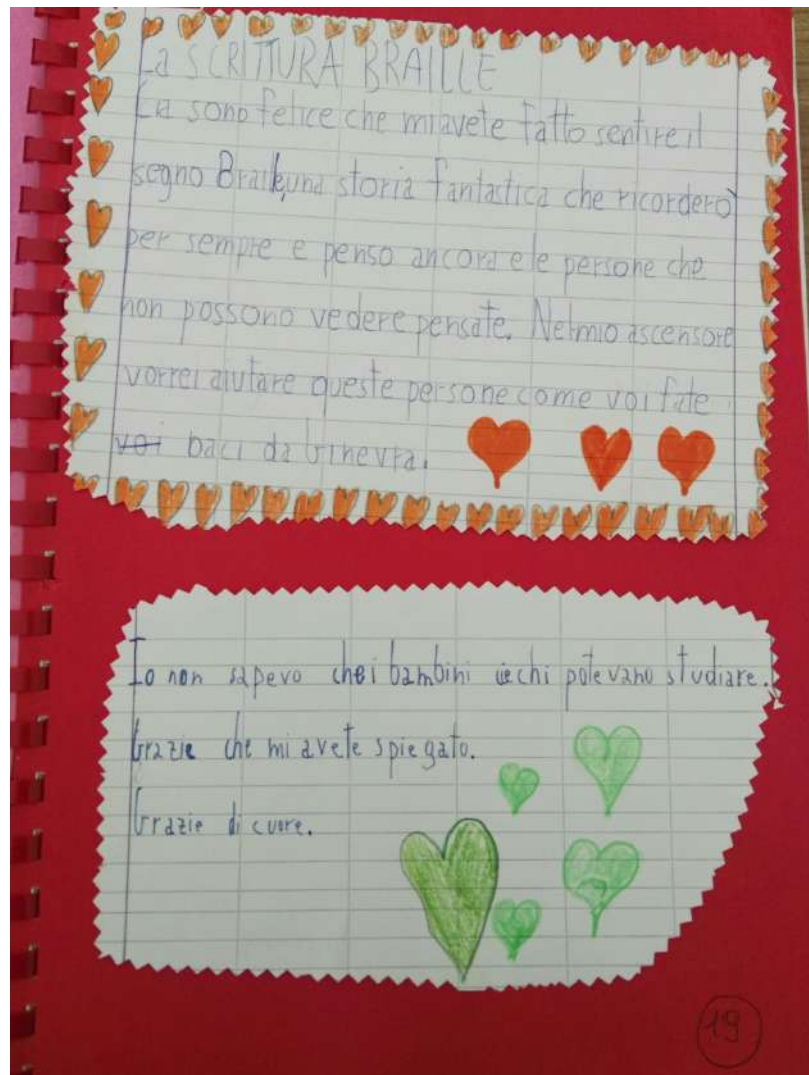 La SCRITTURA BRAILLE
sono felice che mi avete fatto sentire il
segno Braille, una storia fantastica che ricorderò
per sempre e penso ancora e le persone che
non possono vedere pensate. Nel mio ascensore
vorrei aiutare queste persone come voi fate
voi baci da Ginevra.
Io non sapevo che i bambini ciechi potevano studiare.
Grazie che mi avete spiegato.
Grazie di cuore.
19